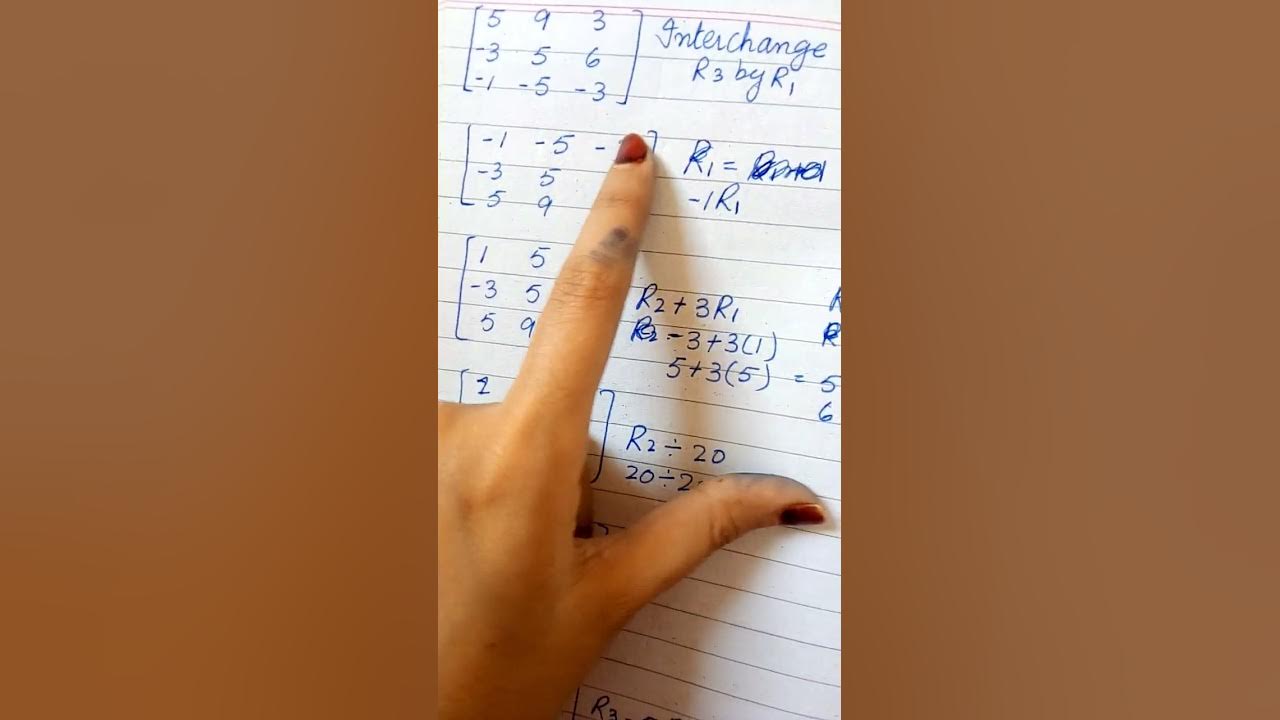 5 9 3
-3 5 6
-1 -5 -3
Interchange
R3 by R1
-1 -5 -
-3 5
5 9
R1 =
-1R1
1 5
-3 5
5 9
R2 + 3R1
-3+3(1)
5+3(5) = 5
6
R2 ÷ 20
20÷2
R3